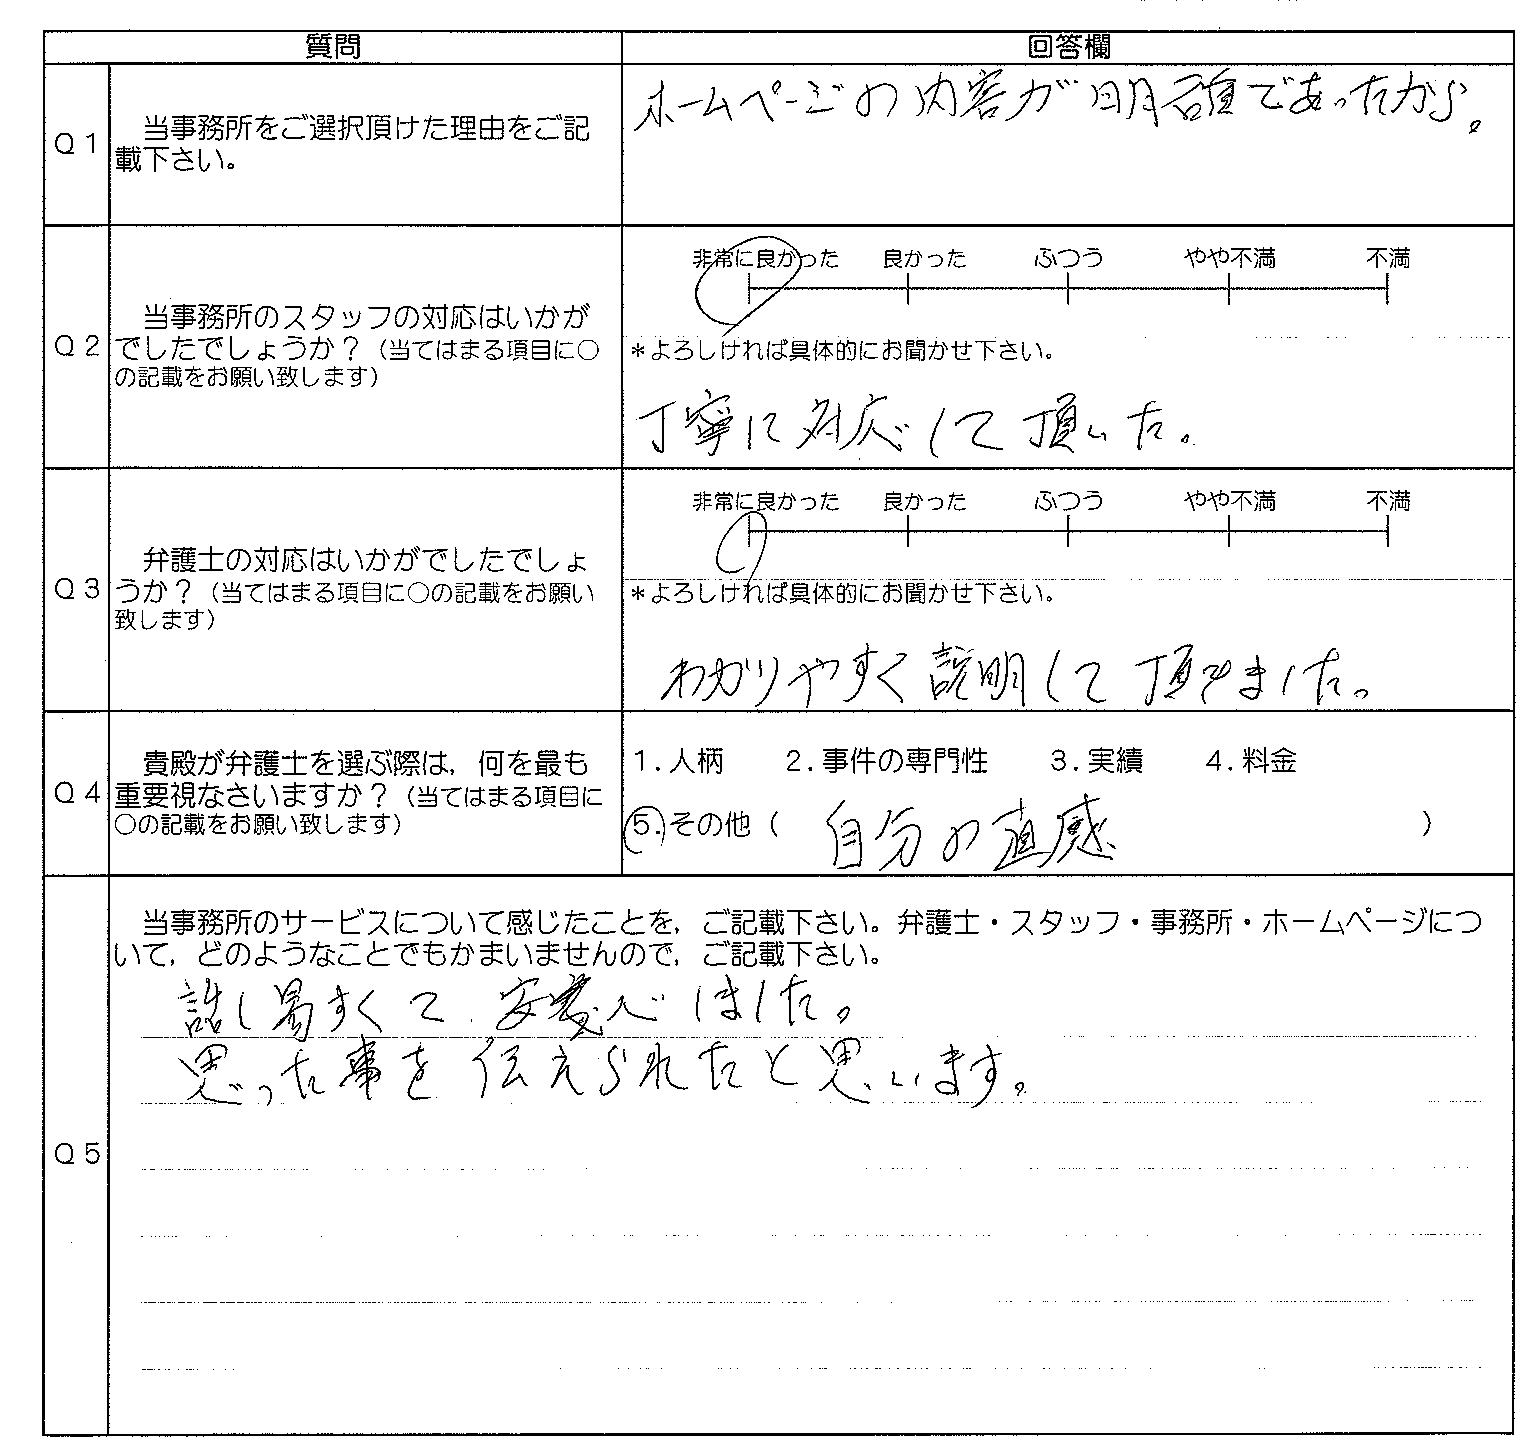 質問 回答欄
Q1 当事務所をご選択頂けた理由をご記
載下さい。
ホームページの内容が明確であったから。
Q2 当事務所のスタッフの対応はいかが
でしたでしょうか？（当てはまる項目に○
の記載をお願い致します）
非常に良かった 良かった ふつう やや不満 不満
＊よろしければ具体的にお聞かせ下さい。
丁寧に対応して頂いた。
Q3 弁護士の対応はいかがでしたでしょ
うか？（当てはまる項目に○の記載をお願い
致します）
非常に良かった 良かった ふつう やや不満 不満
＊よろしければ具体的にお聞かせ下さい。
わかりやすく説明して頂きました。
Q4 貴殿が弁護士を選ぶ際は，何を最も
重要視なさいますか？（当てはまる項目に
○の記載をお願い致します）
1.人柄 2.事件の専門性 3.実績 4.料金
5.その他（ 自分の直感 ）
Q5 当事務所のサービスについて感じたことを，ご記載下さい。弁護士・スタッフ・事務所・ホームページにつ
いて，どのようなことでもかまいませんので，ご記載下さい。
話し易すくて 安心しました。
思った事を伝えられたと思います。